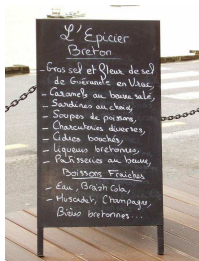 L'Epicier
Breton
- Gros sel et fleur de sel
de Guérande en Vrac,
- Caramels au beurre salé,
- Sardines au choix,
- Soupes de poissons,
- Charcuteries diverses,
- Cidres bouchés,
- Liqueurs bretonnes,
- Patisseries au beurre,
Boissons Fraiches
- Eau, Breizh Cola,
- Muscadet, Champagne,
Bières bretonnes...